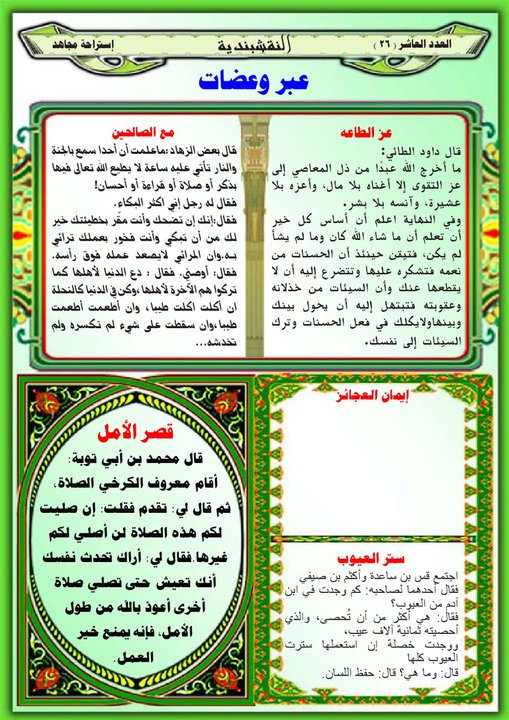 العدد العاشر (٢٦)
النقشبندية
إستراحة مجاهد
عبر وعضات
عز الطاعه
قال داود الطائي:
ما أخرج الله عبدًا من ذل المعاصي إلى
عز التقوى إلا أغناه بلا مال، وأعزه بلا
عشيرة، وآنسه بلا بشر.
وفي النهاية اعلم أن أساس كل خير
أن تعلم أن ما شاء الله كان وما لم يشأ
لم يكن، فتيقن حينئذ أن الحسنات من
نعمه فتشكره عليها وتتضرع إليه أن لا
يقطعها عنك وأن السيئات من خذلانه
وعقوبته فتبتهل إليه أن يحول بينك
وبينهاولايكلك في فعل الحسنات وترك
السيئات إلى نفسك.
مع الصالحين
قال بعض الزهاد :ماعلمت أن أحدا سمع بالجنة
والنار تأتي عليه ساعة لا يطيع الله تعالى فيها
بذكر أو صلاة أو قراءة أو أحسان!
فقال له رجل إني اكثر البكاء.
فقال:إنك إن تضحك وأنت مقر بخطيئتك خير
لك من أن تبكي وأنت فخور بعملك ترائي
به.وان المرائي لايصعد عمله فوق رأسه.
فقال: أوصني. فقال : دع الدنيا لأهلها كما
تركوا هم الآخرة لأهلها،وكن في الدنيا كالنحلة
ان أكلت اكلت طيبا، وان أطعمت أطعمت
طيبا،وان سقطت على شيء لم تكسره ولم
تخدشه...
إيمان العجائز
ستر العيوب
اجتمع قس بن ساعدة وأكثم بن صيفي
فقال أحدهما لصاحبه: كم وجدت في ابن
آدم من العيوب؟
فقال: هي أكثر من أن تُحصى، والذي
أحصيته ثمانية آلاف عيب،
ووجدت خصلة إن استعملها سترت
العيوب كلها
قال: وما هي؟ قال: حفظ اللسان.
قصر الأمل
قال محمد بن أبي توبة:
أقام معروف الكرخي الصلاة،
ثم قال لي: تقدم فقلت: إن صليت
لكم هذه الصلاة لن أصلي لكم
غيرها.فقال لي: أراك تحدث نفسك
أنك تعيش حتى تصلي صلاة
أخرى أعوذ بالله من طول
الأمل، فإنه يمنع خير
العمل.